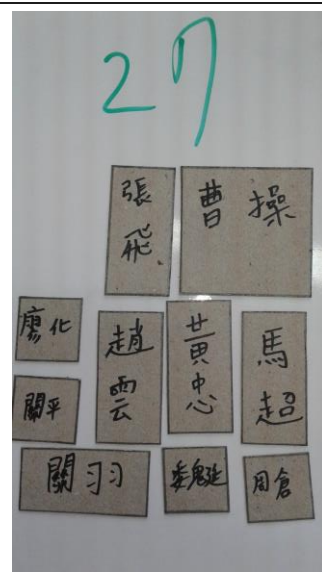 27
張飛
曹操
廖化
趙雲
黃忠
馬超
關平
關羽
魏延
周倉